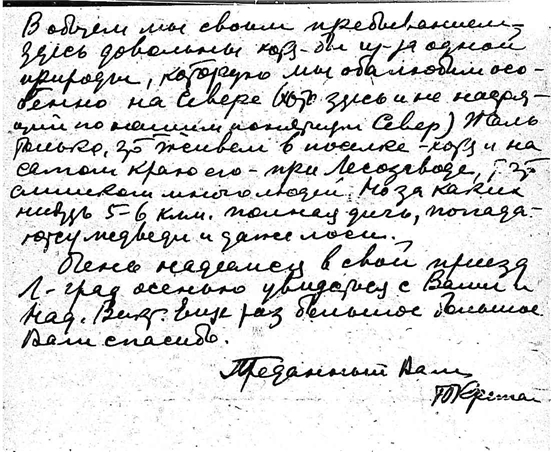 В общем мы своим пребыванием
здесь довольны хотя-бы из-за одной
природы, которую мы оба любим осо-
бенно на Севере (хотя здесь и не настоя-
щий по нашим понятиям Север) Жаль
только, что живем в поселке - хотя и на
самом краю его - при Лесозаводе, где
слишком много людей. Но за каких
нибудь 5-6 клм. полная дичь, попада-
ются медведи и даже лоси.
Очень надеемся в свой приезд
Л-град осенью увидеться с Вами и
Над. Викт. Еще раз большое большое
Вам спасибо.
Преданный Вам